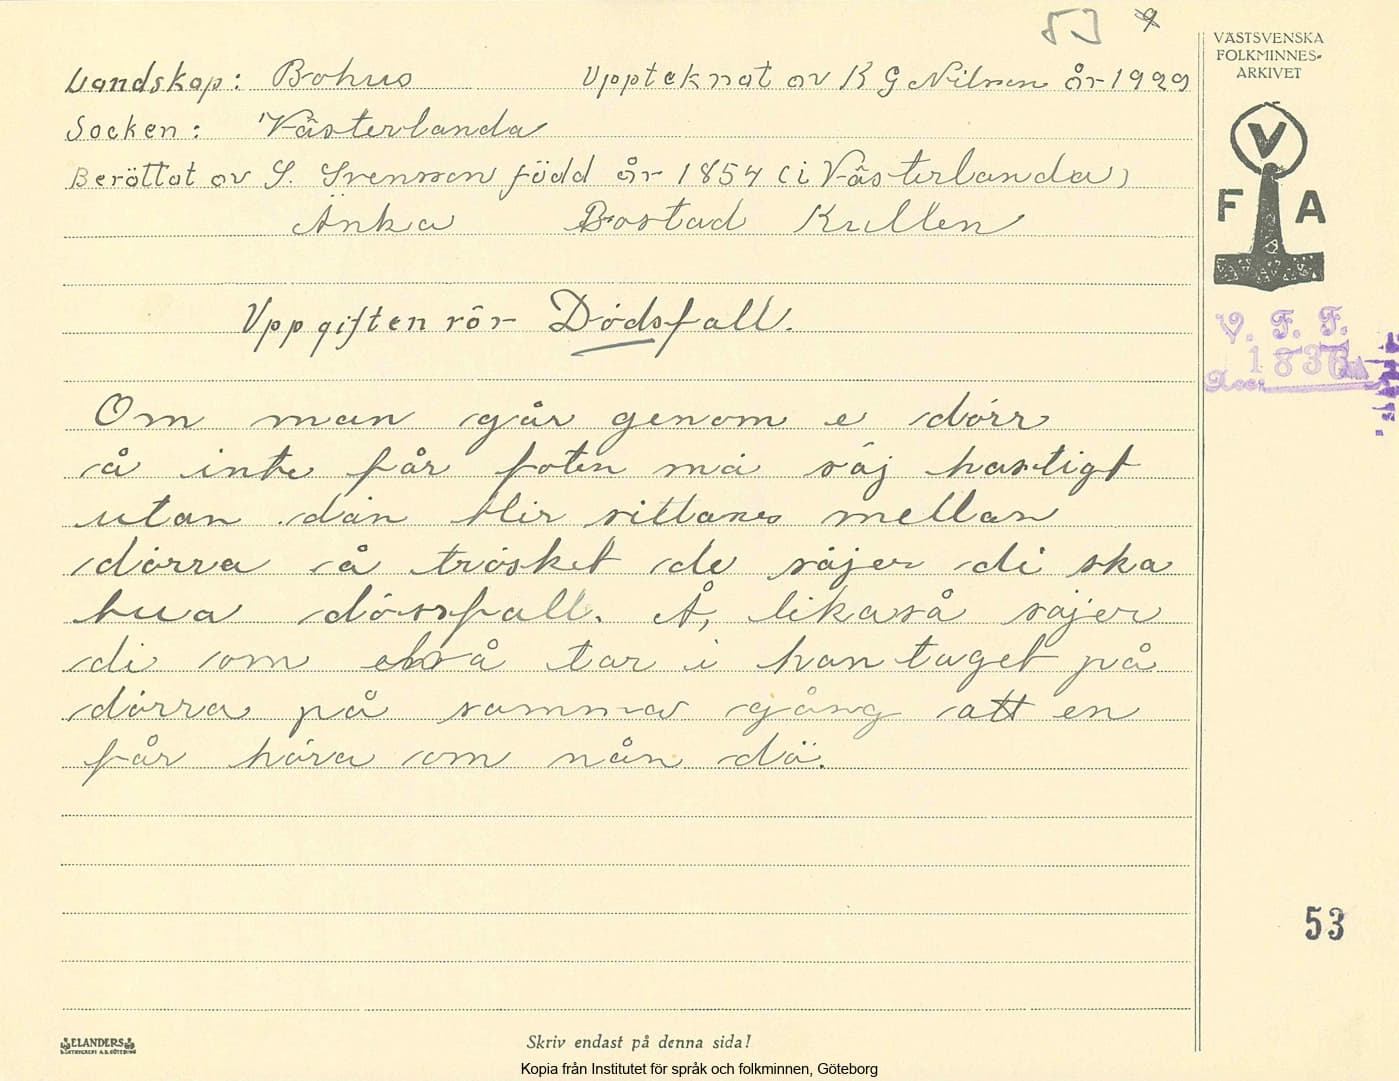 53 9
VÄSTSVENSKA
FOLKMINNES-
ARKIVET
Landskap: Bohus Upptecknat av K G Nilsson år 1929
Socken: Västerlanda
Berättat av S. Svensson född år 1854 (i Västerlanda)
Änka Bostad Kullen
V
F A
Uppgiften rör Dödsfall.
V. F. F.
1836
Acc.
Om man går genom e dörr
å inte får foten må säj hastigt
utan dän blir sittanes mellan
dörra å trösket de säjer di ska
bua dössfall. Å, likaså säjer
di om tar i hantaget på
dörra på samma gång att en
får höra om nån dö.
53
ELANDERS
BOKTRYCKERI A.B. GÖTEBORG
Skriv endast på denna sida!
Kopia från Institutet för språk och folkminnen, Göteborg